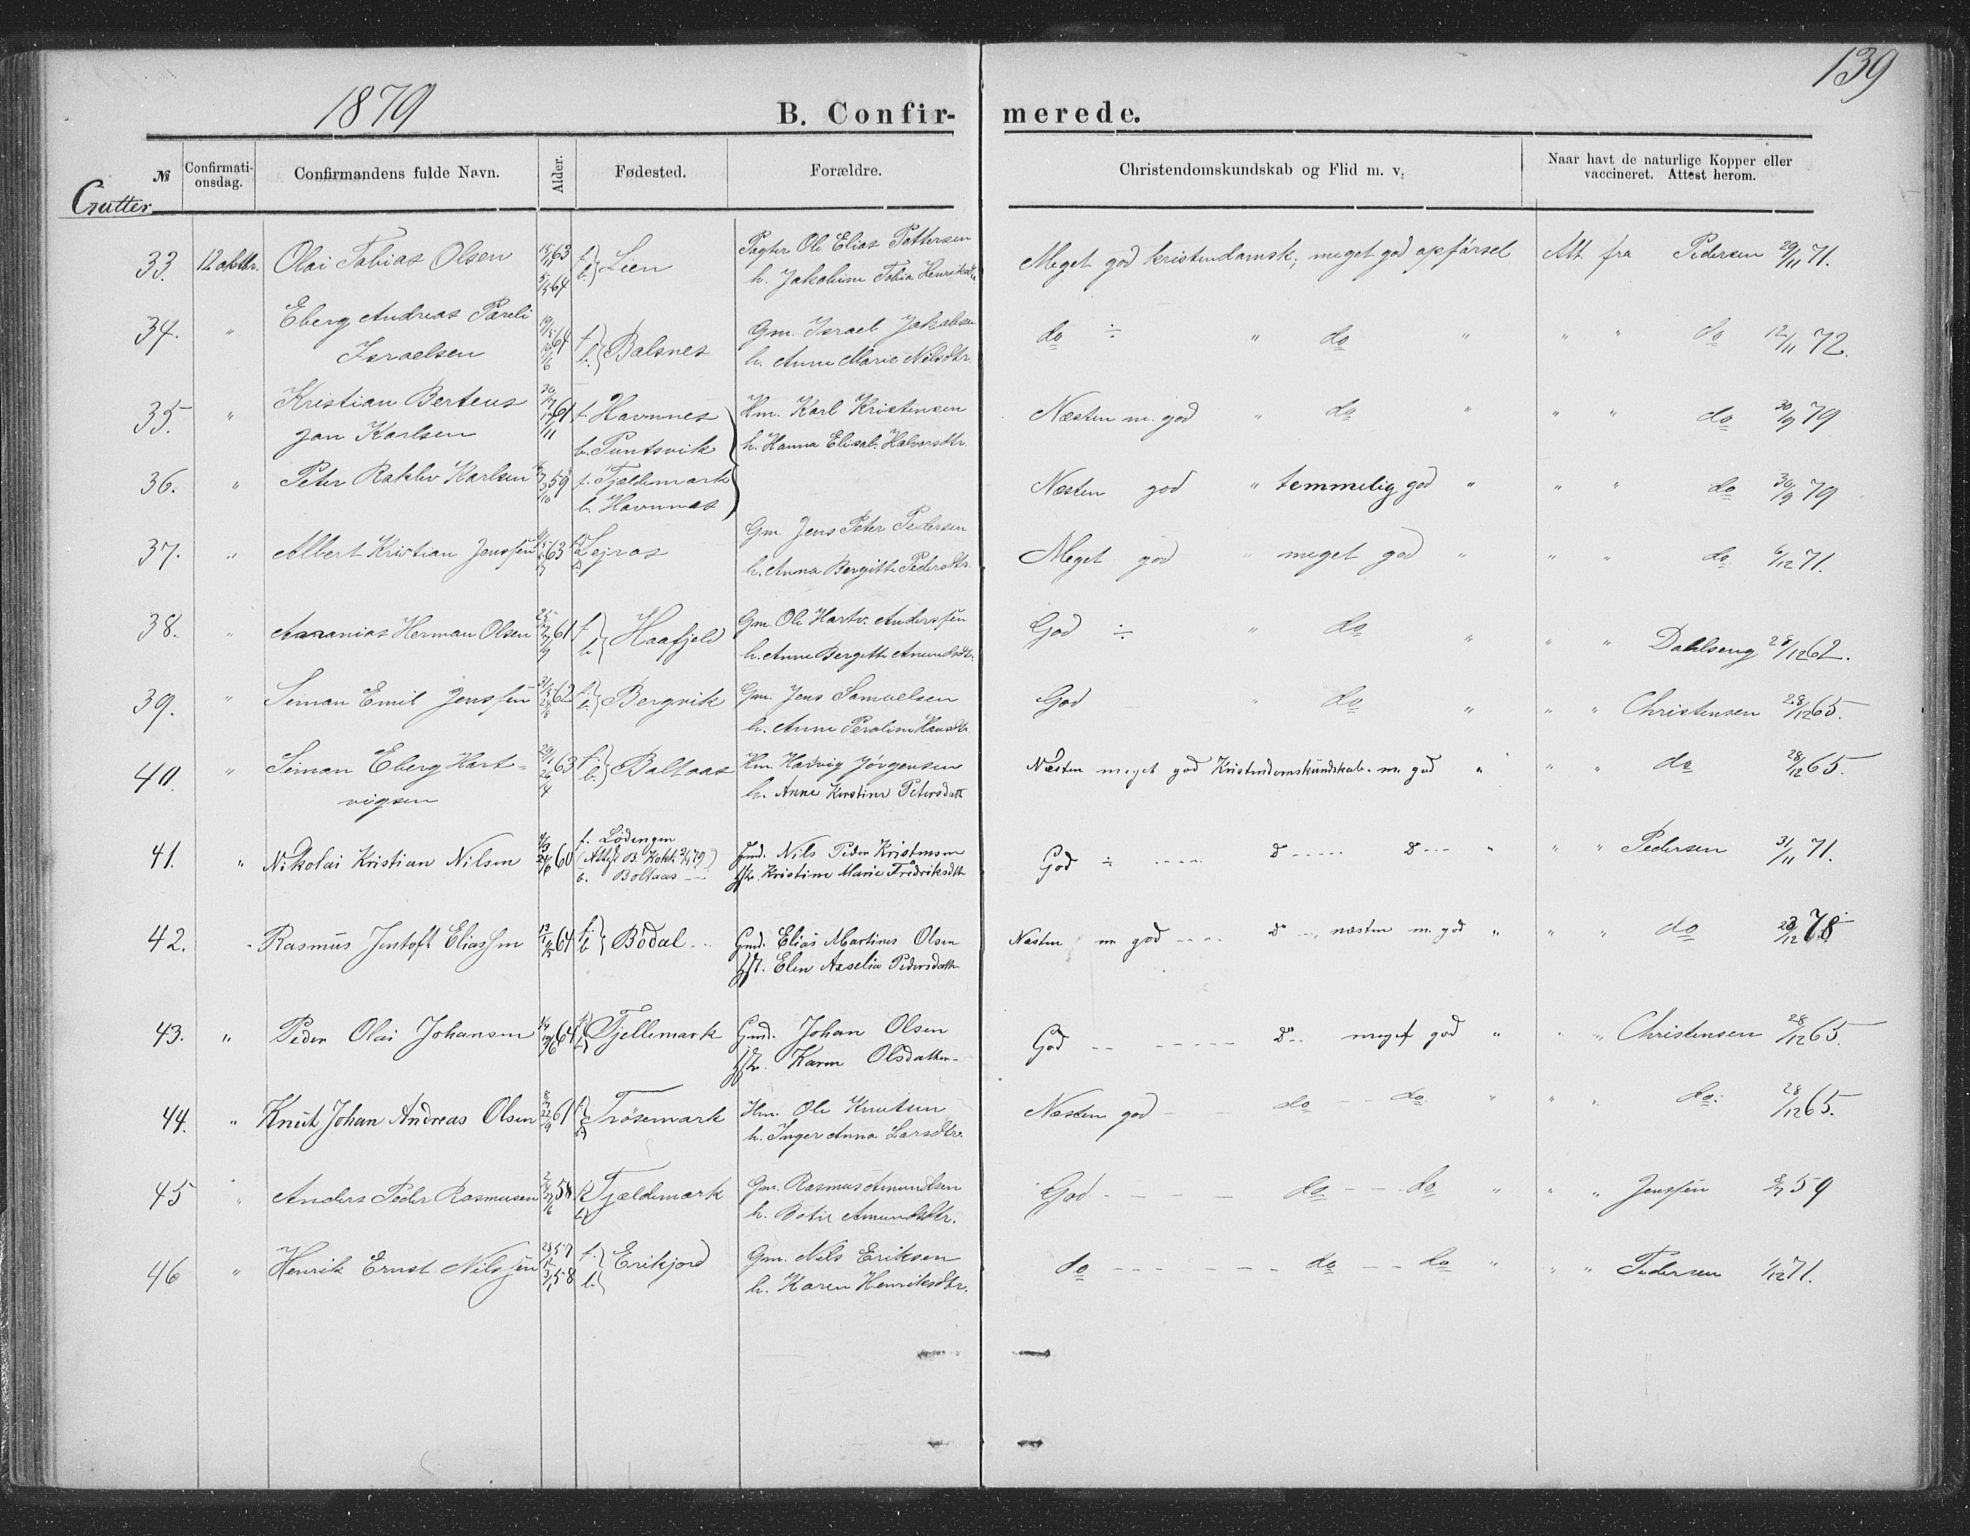 139
1879
B. Confirmerede.
Gutter
№ Confirmationsdag. Confirmandens fulde Navn. Alder. Fødested. Forældre. Christendomskundskab og Flid m. v. Naar havt de naturlige Kopper eller vaccineret. Attest herom.
33. 12 oktbr. Olai Tobias Olsen 63 f. b. Lien Pagter Ole Elias Pettersen Meget god kristendomsk; meget god opførsel Att fra Pedersen 29/11 71.
5/5 64 h. Jakobine Tobia Henriksdtr
34. " Eberg Andreas Pareli 64 f. b. Balsnes Gm. Israel Jakobsen do ÷ " do " " " do 12/11 72.
Israelsen h. Anne Marie Nilsdtr.
35. " Kristian Berteus 61 f. Havnnes Hm. Karl Kristensen Næsten m. god " do " " " do 30/9 79
Jan Karlsen b. Puntsvik h. Hanna Elisab. Halvorsdtr.
36. " Peter Raklev Karlsen 59 f. Fjeldemark Næsten god " temmelig god " " " do 30/9 79
b. Havnnes
37. " Albert Kristian Jenssen 63 Lejros Gm. Jens Peter Pedersen Meget god " meget god " " " do 6/12 71.
h. Anna Bergitte Pedersdtr.
38. " Ananias Herman Olsen 61 f. b. Haafjeld Gm. Ole Hartv. Anderssen God ÷ " do " " " Dahlseng 28/12 62.
h. Anne Bergitte Amundsdtr.
39. " Simon Emil Jenssen 31/5 62 f. b. Bergvik Gm. Jens Samuelsen God " do " " " Christensen 28/12 65.
h. Anne Peroline Hansdtr.
40. " Simon Eberg Hart- 29/1 63 f. b. Boltaas Hm. Hadvig Jørgensen Næsten meget god Kristendomskundskab. m. god " " " do 28/12 65.
vigsen h. Anne Kirstine Petersdatt
41. " Nikolai Kristian Nilsen 60 f. Lödingen Gmd. Nils Peder Kristensen God ÷ ---- Do ---- Do --- " " " Pedersen 31/11 71.
(Attest B. Kokk 79)
b. Boltaas Hstr. Kristine Marie Fredriksdtr
42. " Rasmus Jentoft Eliassen 13/1 64 f. b. Bödal Gmd. Elias Martinus Olsen Næsten m. god ---- Do -- næsten m. god " " " do 78
Hst. Elen Axselia Pedersdatter
43. " Peder Olai Johansen 64 Fjellemark Gmd. Johan Olsen God -- ---- Do -- meget god " " " Christensen 28/12 65.
Hstr. Karen Olsdatter
44. " Knut Johan Andreas Olsen 61 Trösemark Hm. Ole Knutsen Næsten god -- do -- do. " " " do. 28/12 65.
h. Inger Anna Larsdtr.
45 " Anders Peder Rasmussen 58 Fjeldemark Gm. Rasmus Amundsen God - - - - do - - do " " " Jenssen 59
h. Botil Amundsdtr.
46 " Henrik Ernst Nilssen 57 f. b. Erikjord Gm. Nils Eriksen do - - - - do - - do " " " Pedersen 1/12 71.
3/1 58 h. Karen Henriksdtr.